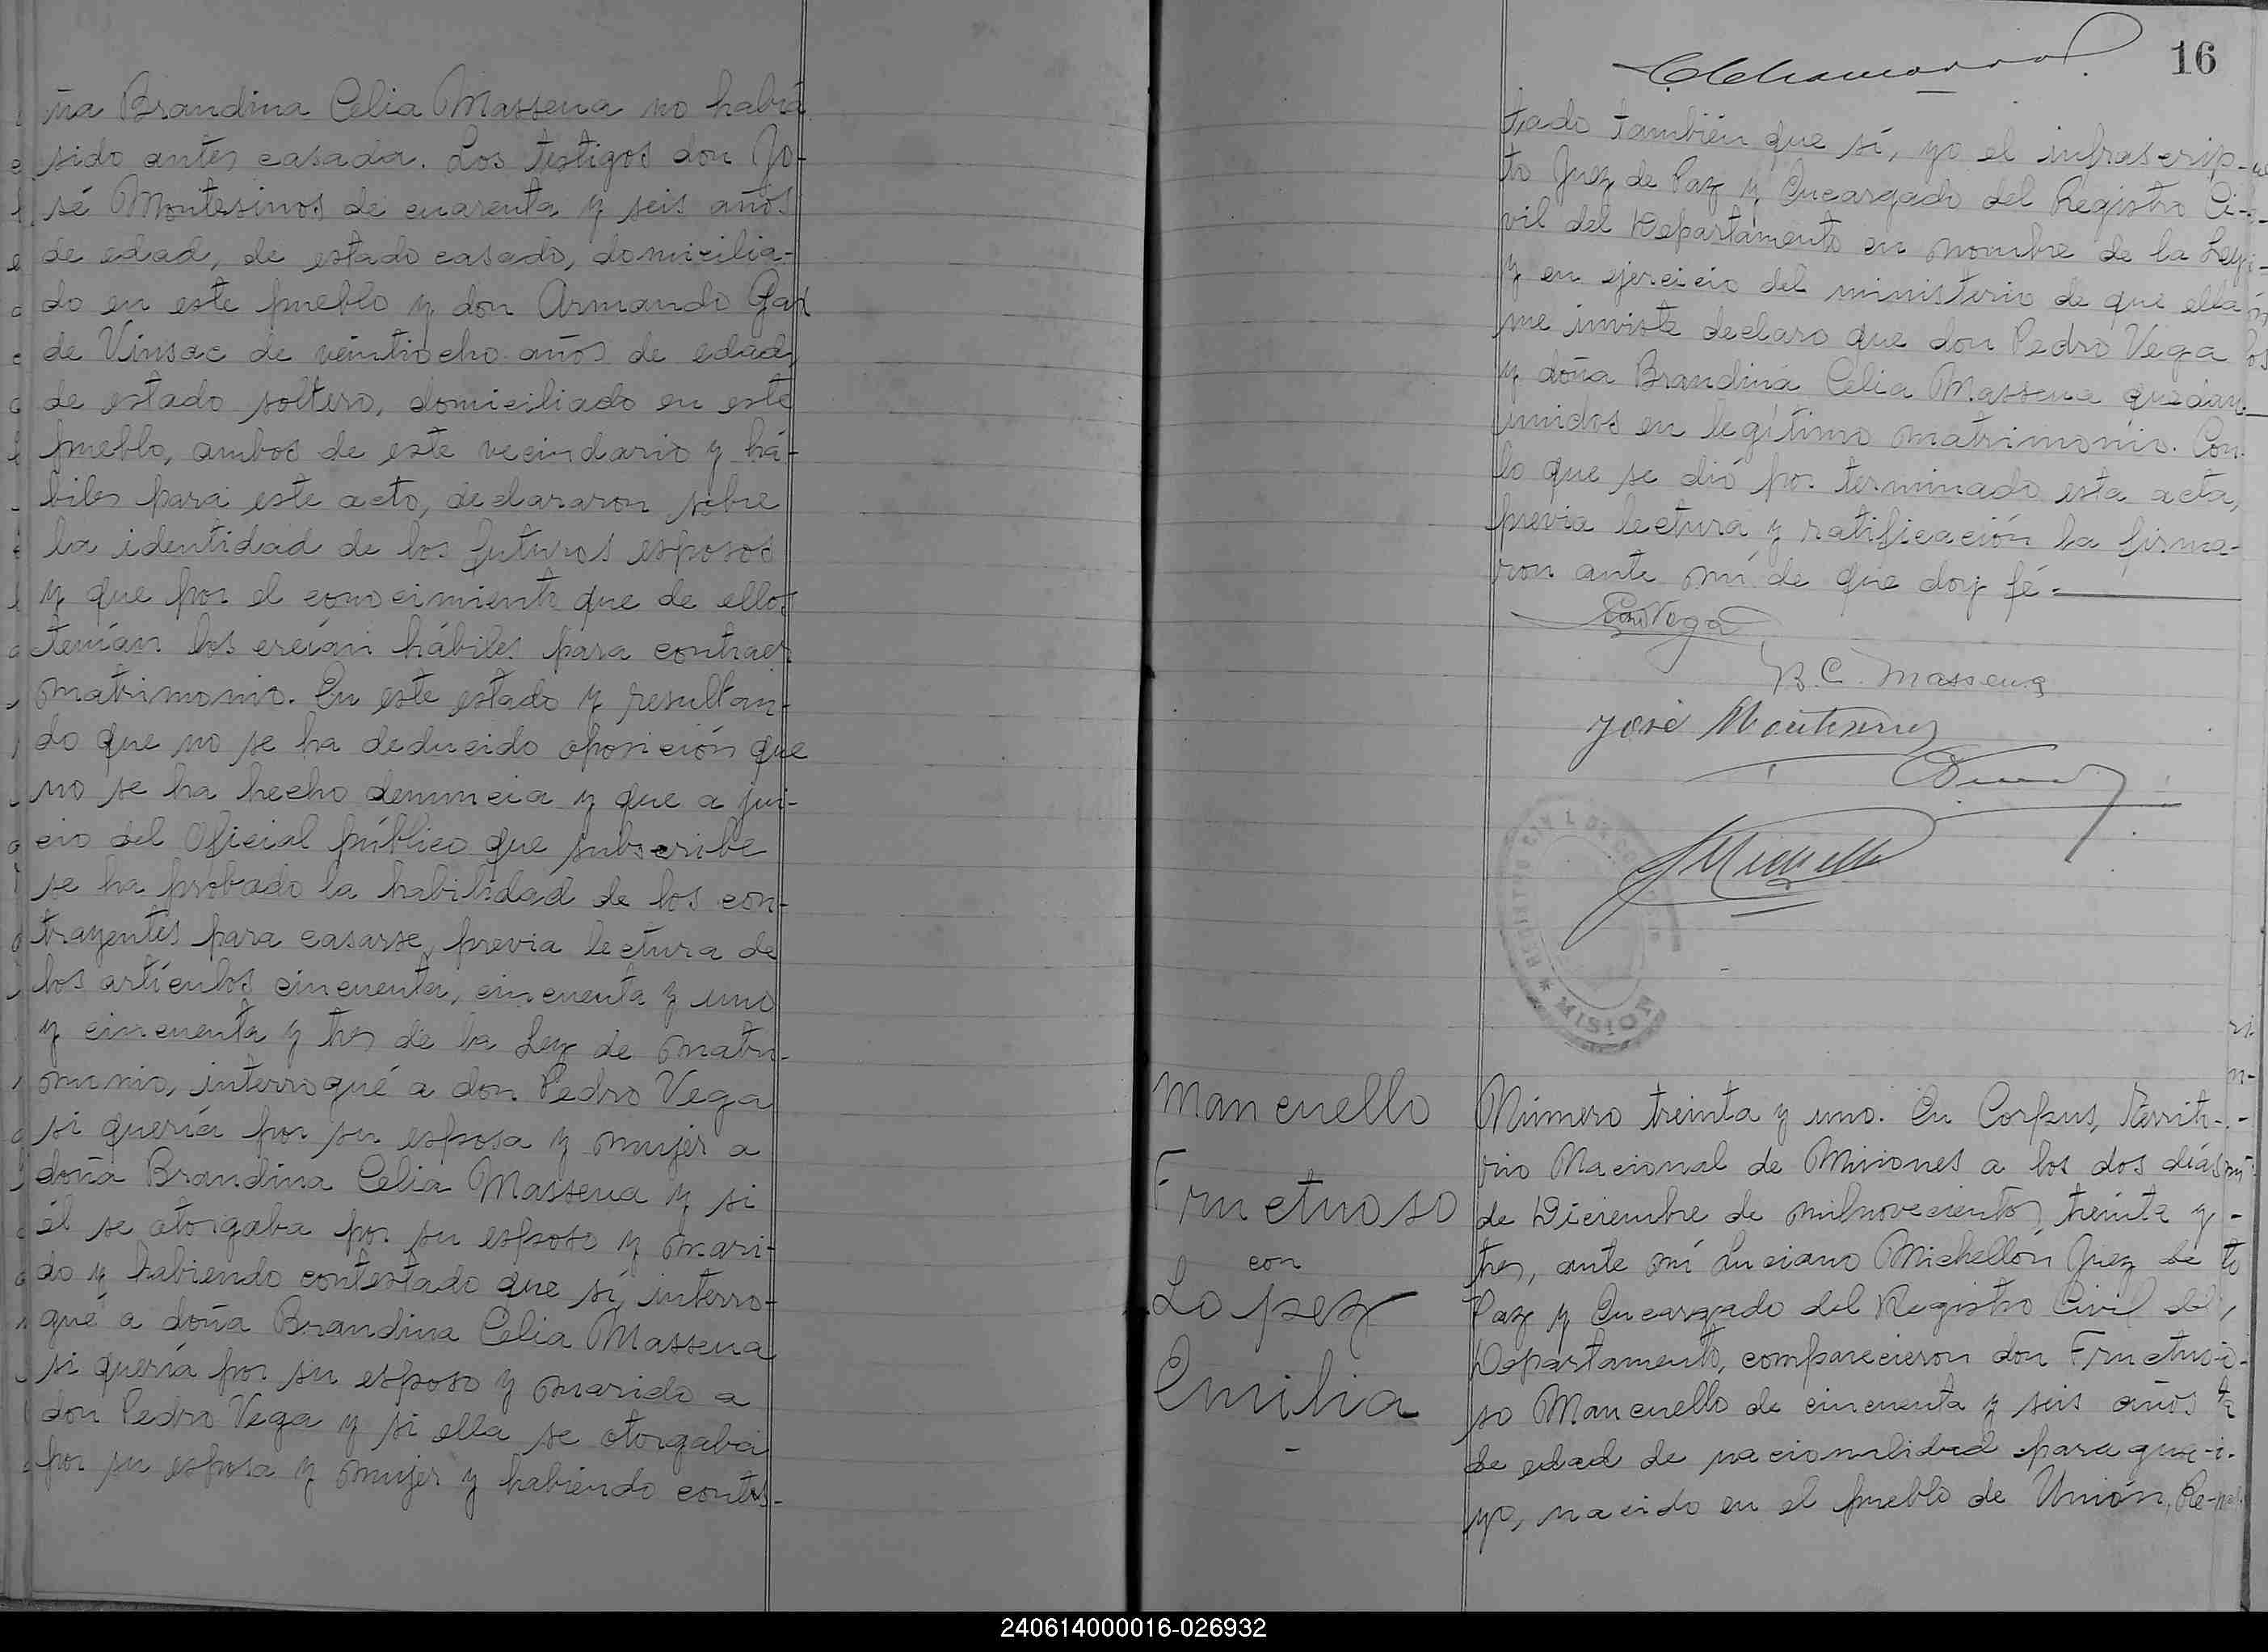 ña Brandina Celia Massena no había
sido antes casada. Los testigos don Jo-
sé Montesinos de cuarenta y seis años
de edad, de estado casado, domicilia-
do en este pueblo y don Armando Gay
de Vinsac de veintiocho años de edad,
de estado soltero, domiciliado en este
pueblo, ambos de este vecindario y há-
biles para este acto, declararon sobre
la identidad de los futuros esposos
y que por el conocimiento que de ellos
tenían los creían hábiles para contraer
matrimonio. En este estado y resultan-
do que no se ha deducido oposición que
no se ha hecho denuncia y que a jui-
cio del Oficial público que subscribe
se ha probado la habilidad de los con-
trayentes para casarse, previa lectura de
los artículos cincuenta, cincuenta y uno
y cincuenta y tres de la Ley de matri-
monio, interrogué a don Pedro Vega
si quería por su esposa y mujer a
doña Brandina Celia Massena y si
él se otorgaba por su esposo y mari-
do y habiendo contestado que sí, interro-
gué a doña Brandina Celia Massena
si quería por su esposo y marido a
don Pedro Vega y si ella se otorgaba
por su esposa y mujer y habiendo contes-
16
tado también que sí, yo el infrascrip-
to Juez de Paz y Encargado del Registro Ci-
vil del Departamento en nombre de la Ley
y en ejercicio del ministerio de que ella
me inviste declaro que don Pedro Vega
y doña Brandina Celia Massena quedan
unidos en legítimo matrimonio. Con
lo que se dió por terminado esta acta,
previa lectura y ratificación la firma-
ron ante mí de que doy fé.
Vega
B. C. Massena
José Montesinos
Michellón
REGISTRO CIVIL DE
* MISION
Mancuello
Fructuoso
con
Lopez
Emilia
Número treinta y uno. En Corpus, Territo-
rio Nacional de Misiones a los dos días
de Diciembre de milnovecientos treinta y
tres, ante mí Luciano Michellón Juez de
Paz y Encargado del Registro Civil del
Departamento, comparecieron don Fructuo-
so Mancuello de cincuenta y seis años
de edad de nacionalidad paragua-
yo, nacido en el pueblo de Unión, Re-
240614000016-026932